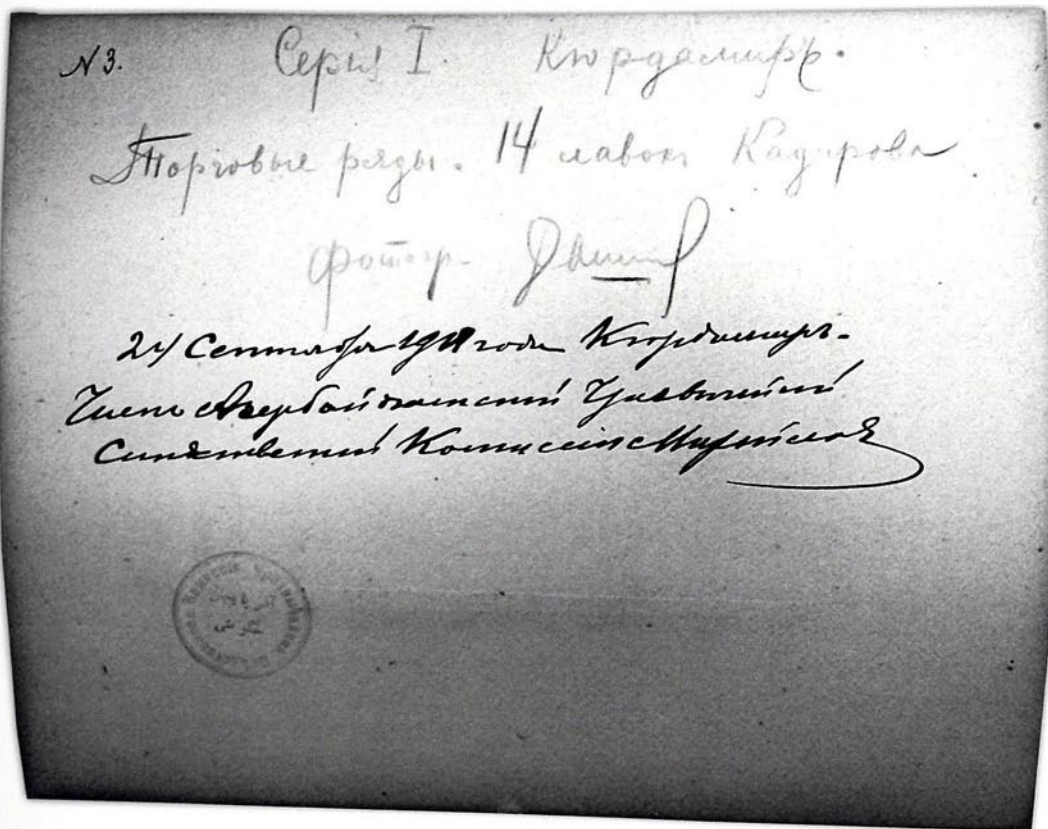 N 3. Серiя I. Кюрдамиръ.
Торговые ряды. 14 лавокъ Кадирова
фотогр.
24 Сентября 1918 года Кюрдамиръ.
Членъ Азербайджанской Чрезвычайной
Слѣдственной Комиссiи